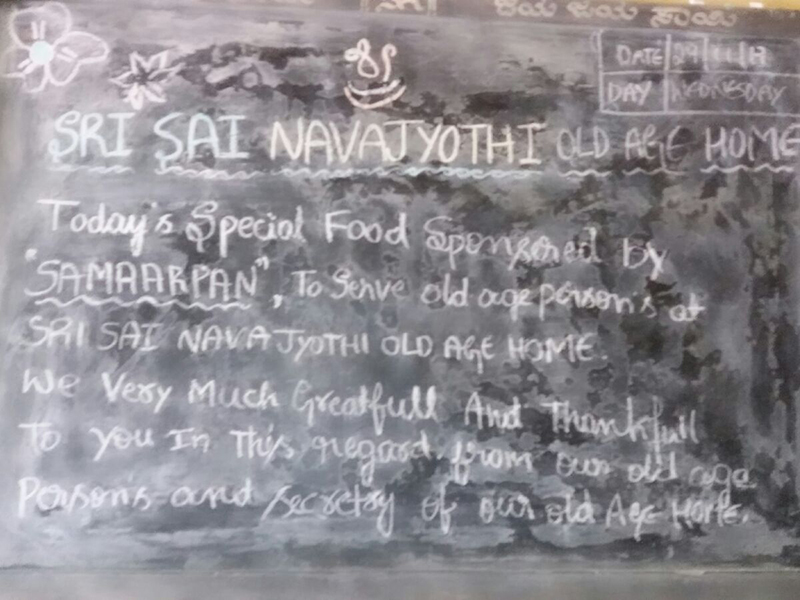 ಜಯ ಜಯ ಸಾಯಿ
DATE 29/11/17
DAY WEDNESDAY
SRI SAI NAVAJYOTHI OLD AGE HOME
Today's Special Food Sponsored by
"SAMAARPAN", To Serve old age person's at
SRI SAI NAVAJYOTHI OLD AGE HOME.
We Very Much Greatfull And Thankfull
To you In This regard from our old age
Person's and secretry of our old Age Home.